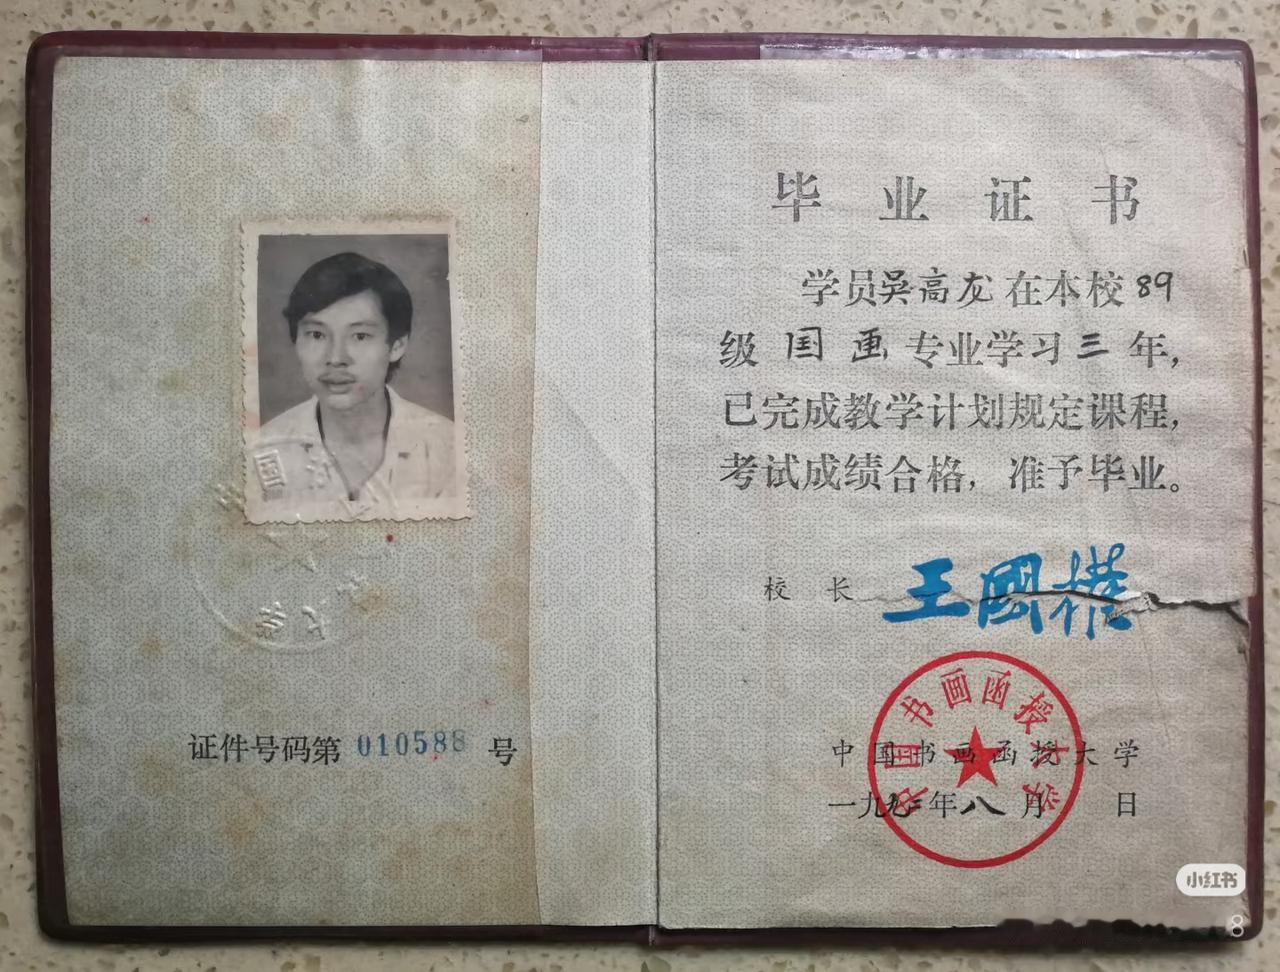 证件号码第 010588 号
毕业证书
学员吴高龙在本校89
级国画专业学习三年,
已完成教学计划规定课程,
考试成绩合格,准予毕业。
校长 王國權
中国书画函授大学
中国书画函授大学
一九九二年八月 日
小红书
8